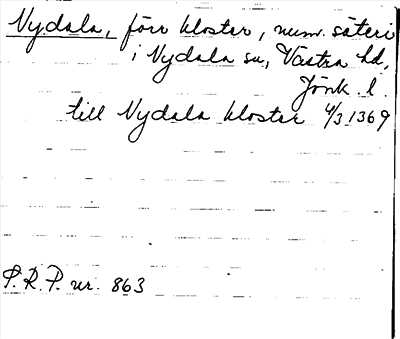 Nydala, förr kloster, num. säteri
i Nydala sn, Västra hd,
Jönk. l.
till Nydala kloster 4/3 1369
S.R.P. nr. 863